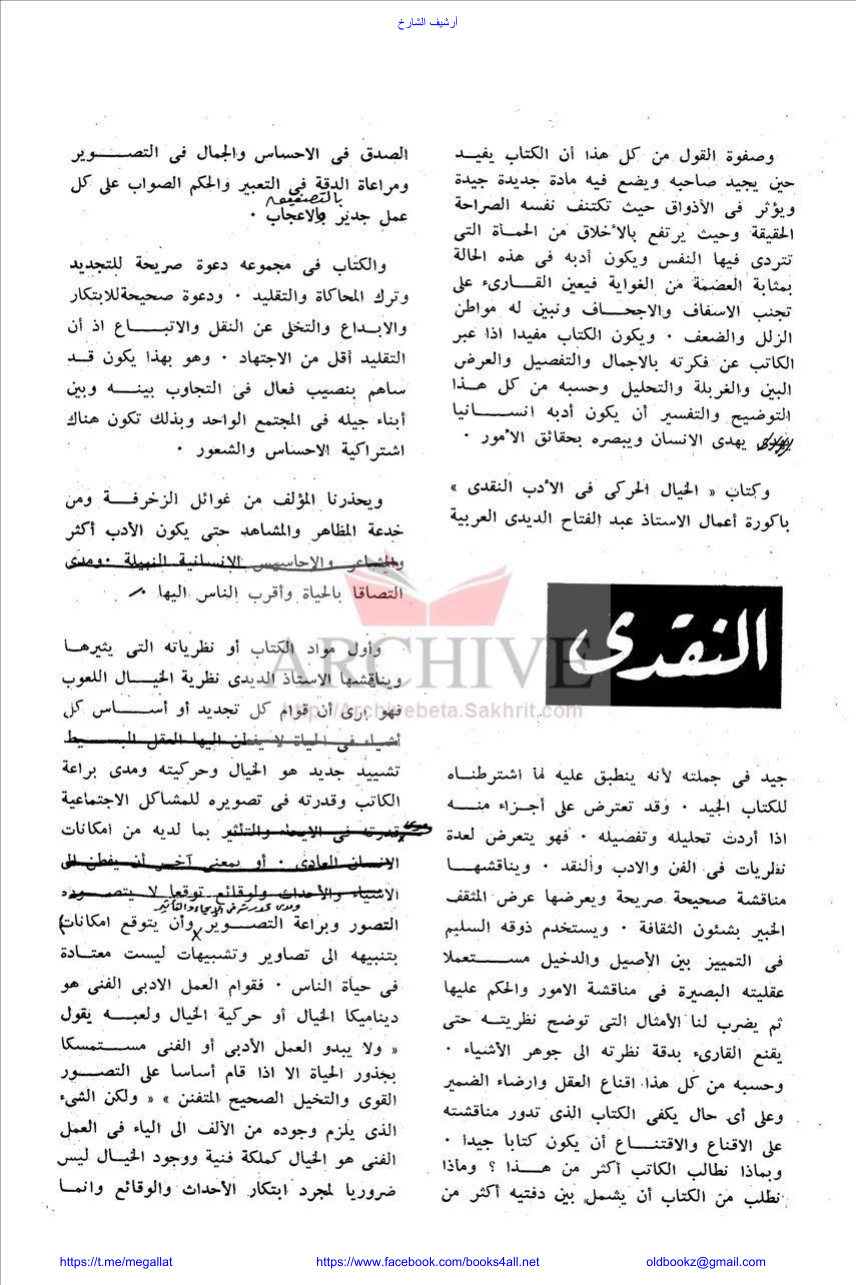 أرشيف الشارخ
وصفوة القول من كل هذا أن الكتاب يفيد
حين يجيد صاحبه ويضع فيه مادة جديدة جيدة
ويؤثر فى الأذواق حيث تكتنف نفسه الصراحة
الحقيقة وحيث يرتفع بالأخلاق من الحمأة التى
تتردى فيها النفس ويكون أدبه فى هذه الحالة
بمثابة العصمة من الغواية فيعين القارىء على
تجنب الاسفاف والاجحاف ونبين له مواطن
الزلل والضعف ٠ ويكون الكتاب مفيدا اذا عبر
الكاتب عن فكرته بالاجمال والتفصيل والعرض
البين والغربلة والتحليل وحسبه من كل هذا
التوضيح والتفسير أن يكون أدبه انسانيا
يهدى الانسان ويبصره بحقائق الأمور ٠
وكتاب « الخيال الحركى فى الأدب النقدى »
باكورة أعمال الاستاذ عبد الفتاح الديدى العربية
النقدى
جيد فى جملته لأنه ينطبق عليه لما اشترطناه
للكتاب الجيد ٠ وقد تعترض على أجزاء منه
اذا أردت تحليله وتفصيله ٠ فهو يتعرض لعدة
نظريات فى الفن والادب والنقد ٠ ويناقشها
مناقشة صحيحة صريحة ويعرضها عرض المثقف
الخبير بشئون الثقافة ٠ ويستخدم ذوقه السليم
فى التمييز بين الأصيل والدخيل مستعملا
عقليته البصيرة فى مناقشة الامور والحكم عليها
ثم يضرب لنا الأمثال التى توضح نظريته حتى
يقنع القارىء بدقة نظرته الى جوهر الأشياء ٠
وحسبه من كل هذا اقناع العقل وارضاء الضمير
وعلى أى حال يكفى الكتاب الذى تدور مناقشته
على الاقناع والاقتناع أن يكون كتابا جيدا ٠
وبماذا نطالب الكاتب أكثر من هذا ؟ وماذا
نطلب من الكتاب أن يشمل بين دفتيه أكثر من
الصدق فى الاحساس والجمال فى التصوير
ومراعاة الدقة فى التعبير والحكم الصواب على كل
بالتصفيق
عمل جدير والاعجاب ٠
والكتاب فى مجموعه دعوة صريحة للتجديد
وترك المحاكاة والتقليد ٠ ودعوة صحيحة للابتكار
والابداع والتخلى عن النقل والاتباع اذ أن
التقليد أقل من الاجتهاد ٠ وهو بهذا يكون قد
ساهم بنصيب فعال فى التجاوب بينه وبين
أبناء جيله فى المجتمع الواحد وبذلك تكون هناك
اشتراكية الاحساس والشعور ٠
ويحذرنا المؤلف من غوائل الزخرفة ومن
خدعة المظاهر والمشاهد حتى يكون الأدب أكثر
والمشاعر والاحاسيس الانسانية النبيلة ٠ ومدى
التصاقا بالحياة وأقرب الناس اليها ٠
وأول مواد الكتاب أو نظرياته التى يثيرها
ويناقشها الاستاذ الديدى نظرية الخيال اللعوب
فهو يرى أن قوام كل تجديد أو أساس كل
أشياء فى الحياة لا يفطن اليها العقل البسيط
تشييد جديد هو الخيال وحركيته ومدى براعة
الكاتب وقدرته فى تصويره للمشاكل الاجتماعية
قدرته فى الايحاء والتأثير بما لديه من امكانات
الانسان العادى ٠ أو بمعنى آخر أن يفطن الى
الاشياء والأحداث ولوقائع توقعا لا يتصوره
ومدى قدرته فى الايحاء والتأثير
التصور وبراعة التصوير وأن يتوقع امكانات
بتنبيهه الى تصاوير وتشبيهات ليست معتادة
فى حياة الناس ٠ فقوام العمل الادبى الفنى هو
ديناميكا الخيال أو حركية الخيال ولعبه يقول
« ولا يبدو العمل الأدبى أو الفنى مستمسكا
بجذور الحياة الا اذا قام أساسا على التصور
القوى والتخيل الصحيح المتفنن » « ولكن الشىء
الذى يلزم وجوده من الألف الى الياء فى العمل
الفنى هو الخيال كملكة فنية ووجود الخيال ليس
ضروريا لمجرد ابتكار الأحداث والوقائع وانما
ARCHIVE
http://Archivebeta.Sakhrit.com
https://t.me/megallat
https://www.facebook.com/books4all.net
oldbookz@gmail.com